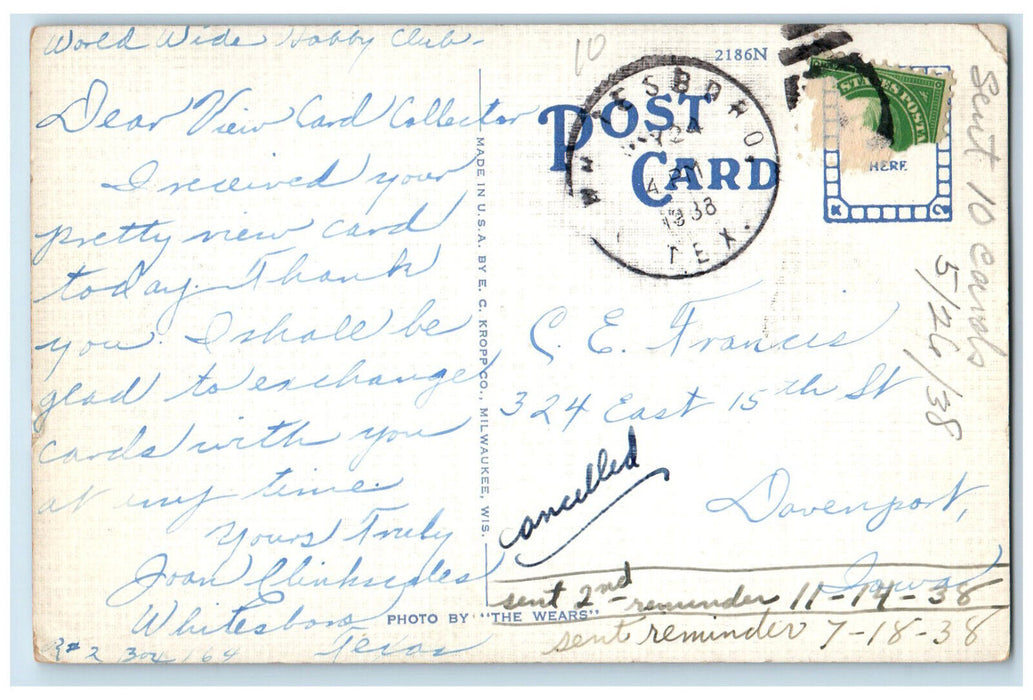 World Wide Hobby Club -
Dear View Card Collector
I received your
pretty view card
today. Thank
you. I shall be
glad to exchange
cards with you
at any time.
Yours Truly
Joan Clinkscales
Whitesboro
Texas
R#2 Box 164
MADE IN U.S.A. BY E. C. KROPP CO., MILWAUKEE, WIS.
PHOTO BY "THE WEARS"
10
2186N
POST
CARD
WHITESBORO.
MAY 24
4 PM
1938
TEX.
STATES POSTA
HERE
C. E. Francis
324 East 15th St
Davenport,
Iowa
cancelled
sent 2nd reminder 11-14-38
sent reminder 7-18-38
Sent 10 cards
5/26/38